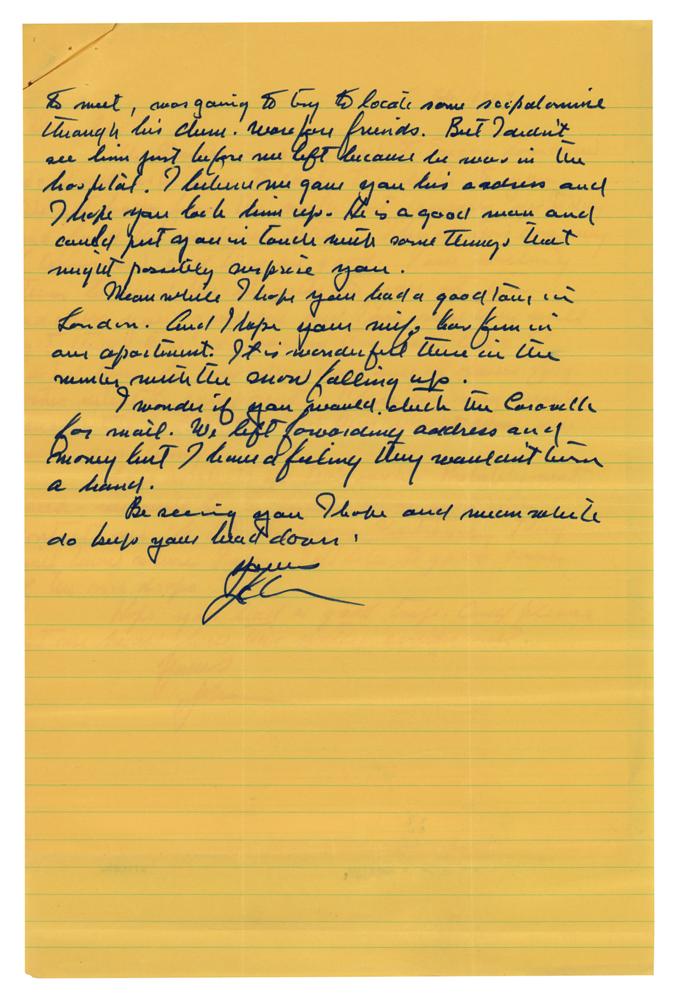 to meet, was going to try to locate some scopalomine
through his chem. warfare friends. But I didn't
see him just before we left because he was in the
hospital. I believe we gave you his address and
I hope you look him up. He is a good man and
could put you in touch with some things that
might possibly surprise you.
Meanwhile I hope you had a good time in
London. And I hope your wife has fun in
our apartment. It is wonderful there in the
winter with the snow falling up.
I wonder if you would check the Caravelle
for mail. We left forwarding address and
money but I have a feeling they wouldn't turn
a hand.
Be seeing you I hope and meanwhile
do keep your head down.
Yours
John